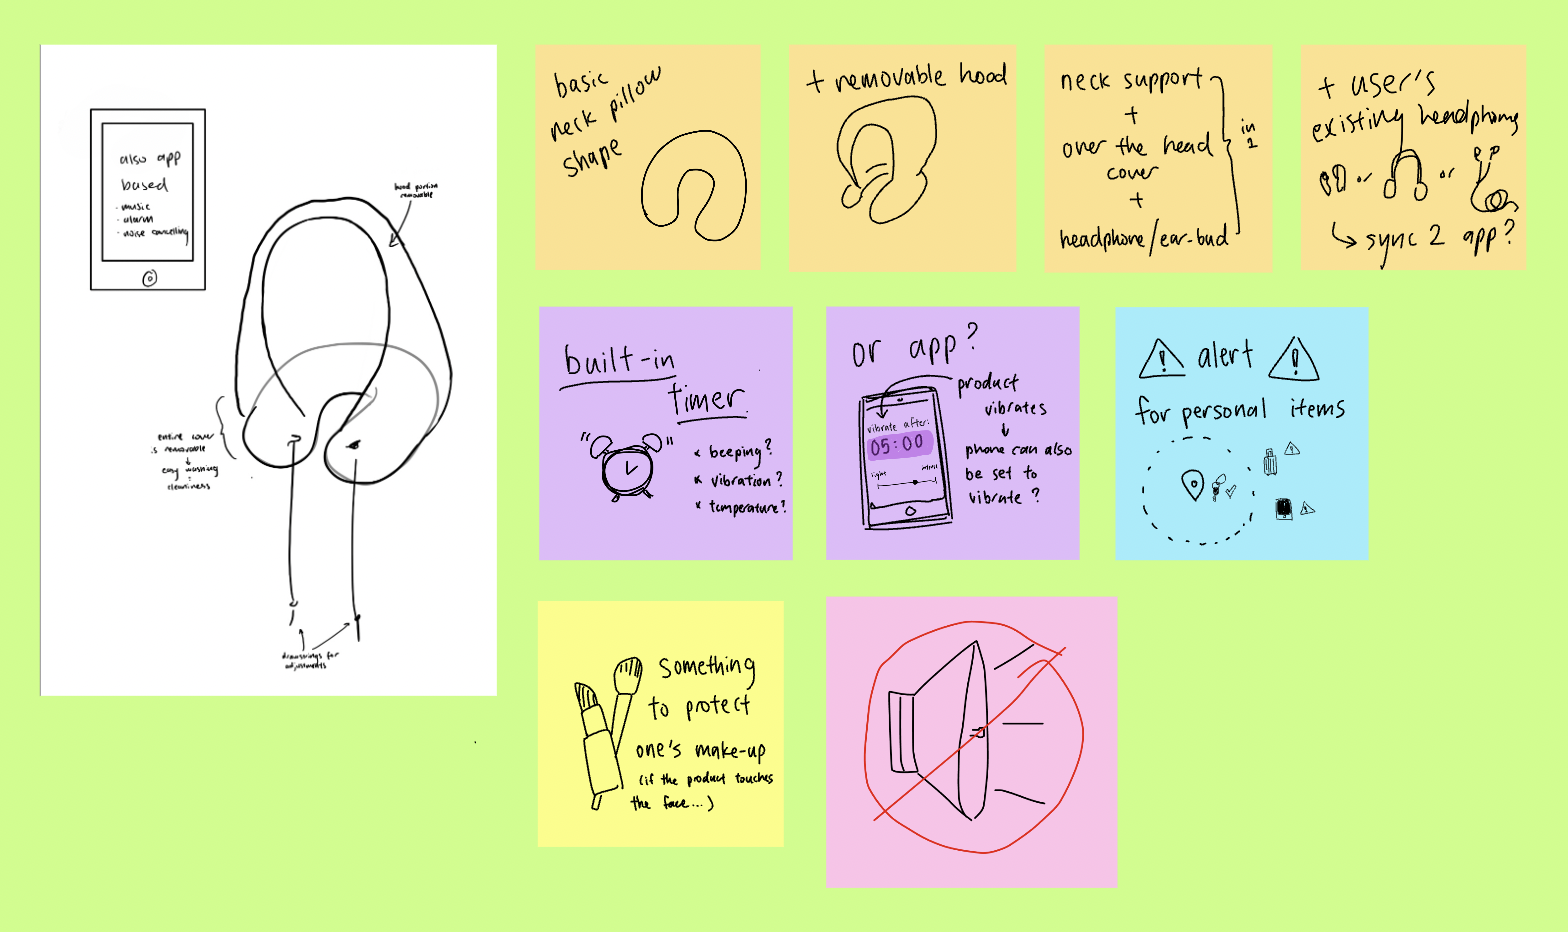 also app
based
· music
· alarm
· noise cancelling
hood portion
removable
entire cover
is removable
↓
easy washing
=
cleanliness
drawstrings for
adjustments
basic
neck pillow
shape
+ removable hood
neck support
+
over the head
cover
+
headphone/ear-bud
in
1
+ user's
existing headphones
or
or
↳ sync 2 app?
built-in
timer
× beeping?
× vibration?
× temperature?
or app?
product
vibrates
↓
phone can also
be set to
vibrate?
vibrate after:
05:00
light
intense
! alert !
for personal items
Something
to protect
one's make-up
(if the product touches
the face...)